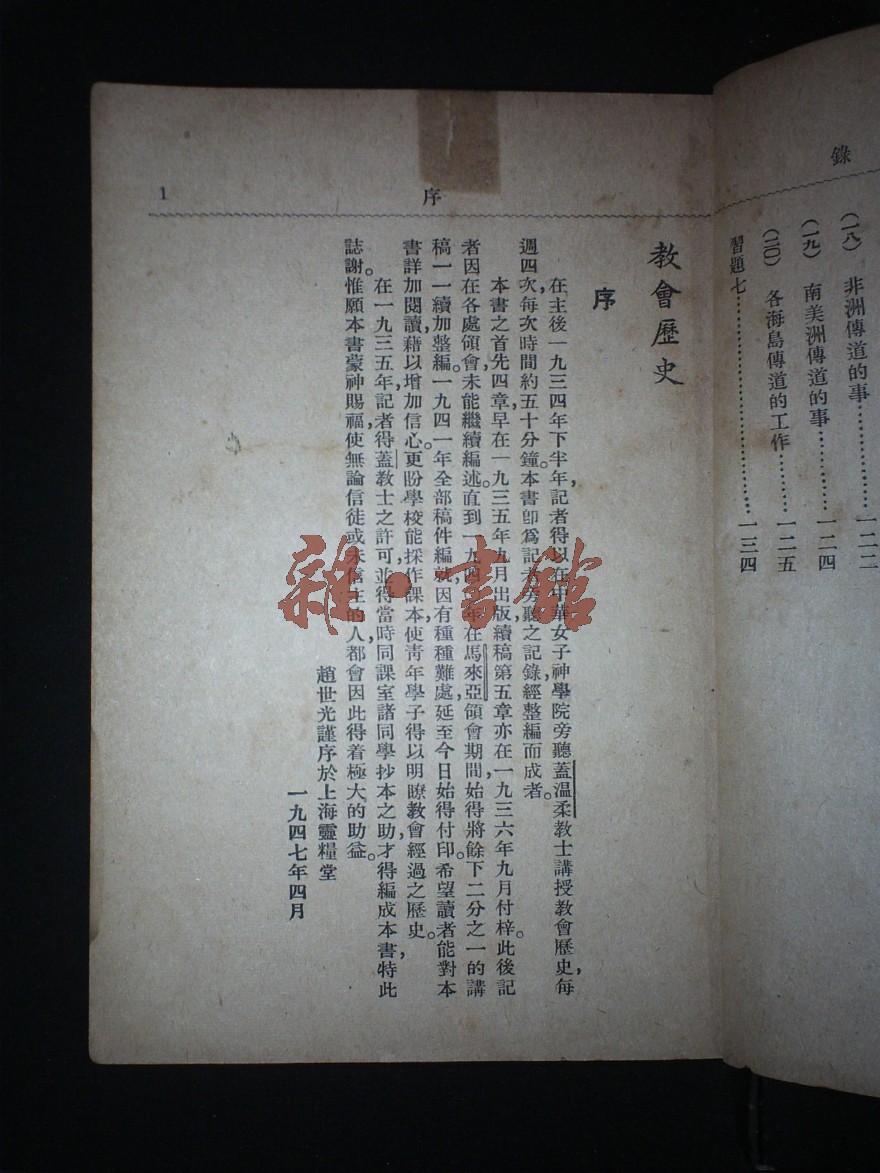 錄
(一八) 非洲傳道的事…………一二二
(一九) 南美洲傳道的事…………一二四
(二〇) 各海島傳道的工作………一二五
習題七……………………………一三四
序
1
教會歷史
序
在主後一九三四年下半年,記者得以在中華女子神學院旁聽蓋温柔教士講授教會歷史,每
週四次,每次時間約五十分鐘。本書卽爲記者旁聽之記錄,經整編而成者。
本書之首先四章,早在一九三五年九月出版,續稿第五章亦在一九三六年九月付梓。此後記
者因在各處領會,未能繼續編述。直到一九四 年在馬來亞領會期間,始得將餘下二分之一的講
稿一一續加整編。一九四一年全部稿件編就,因有種種難處,延至今日始得付印。希望讀者能對本
書詳加閱讀,藉以增加信心。更盼學校能採作課本,使靑年學子得以明瞭教會經過之歷史。
在一九三五年,記者得蓋教士之許可,並得當時同課室諸同學抄本之助,才得編成本書,特此
誌謝。惟願本書蒙神賜福,使無論信徒或未信主的人,都會因此得着極大的助益。
趙世光謹序於上海靈糧堂
一九四七年四月
雜·書館